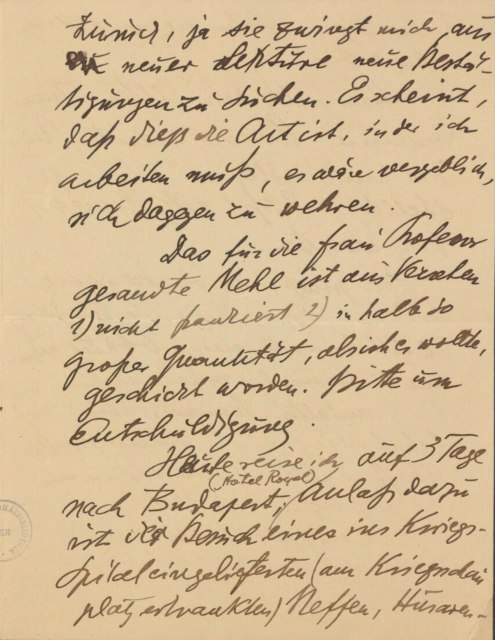 zurück, ja sie zwingt mich, aus
neuer Lektüre neue Bestä-
tigungen zu suchen. Es scheint,
daß dieß die Art ist, in der ich
arbeiten muß, es wäre vergeblich,
sich dagegen zu wehren.
Das für die Frau Professor
gesandte Mehl ist aus Versehen
1) nicht frankiert 2) in halb so
großer Quantität, als ich es wollte,
geschickt worden. Bitte um
Entschuldigung.
Heute reise ich auf 3 Tage
(Hotel Royal)
nach Budapest, Anlaß dazu
ist der Besuch eines ins Kriegs-
spital eingelieferten (am Kriegsschau
platz erkrankten) Neffen, Husaren-